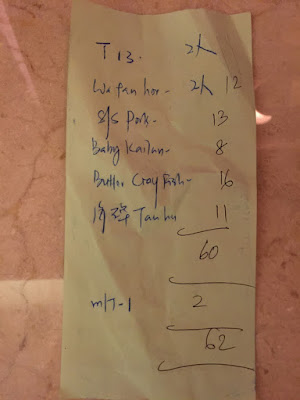 T 13. 2人
Wa fan hor - 2人 12
S/S Pork - 13
Baby Kailan - 8
Butter Cray Fish - 16
Tauhu 11
60
m/7-1 2
62